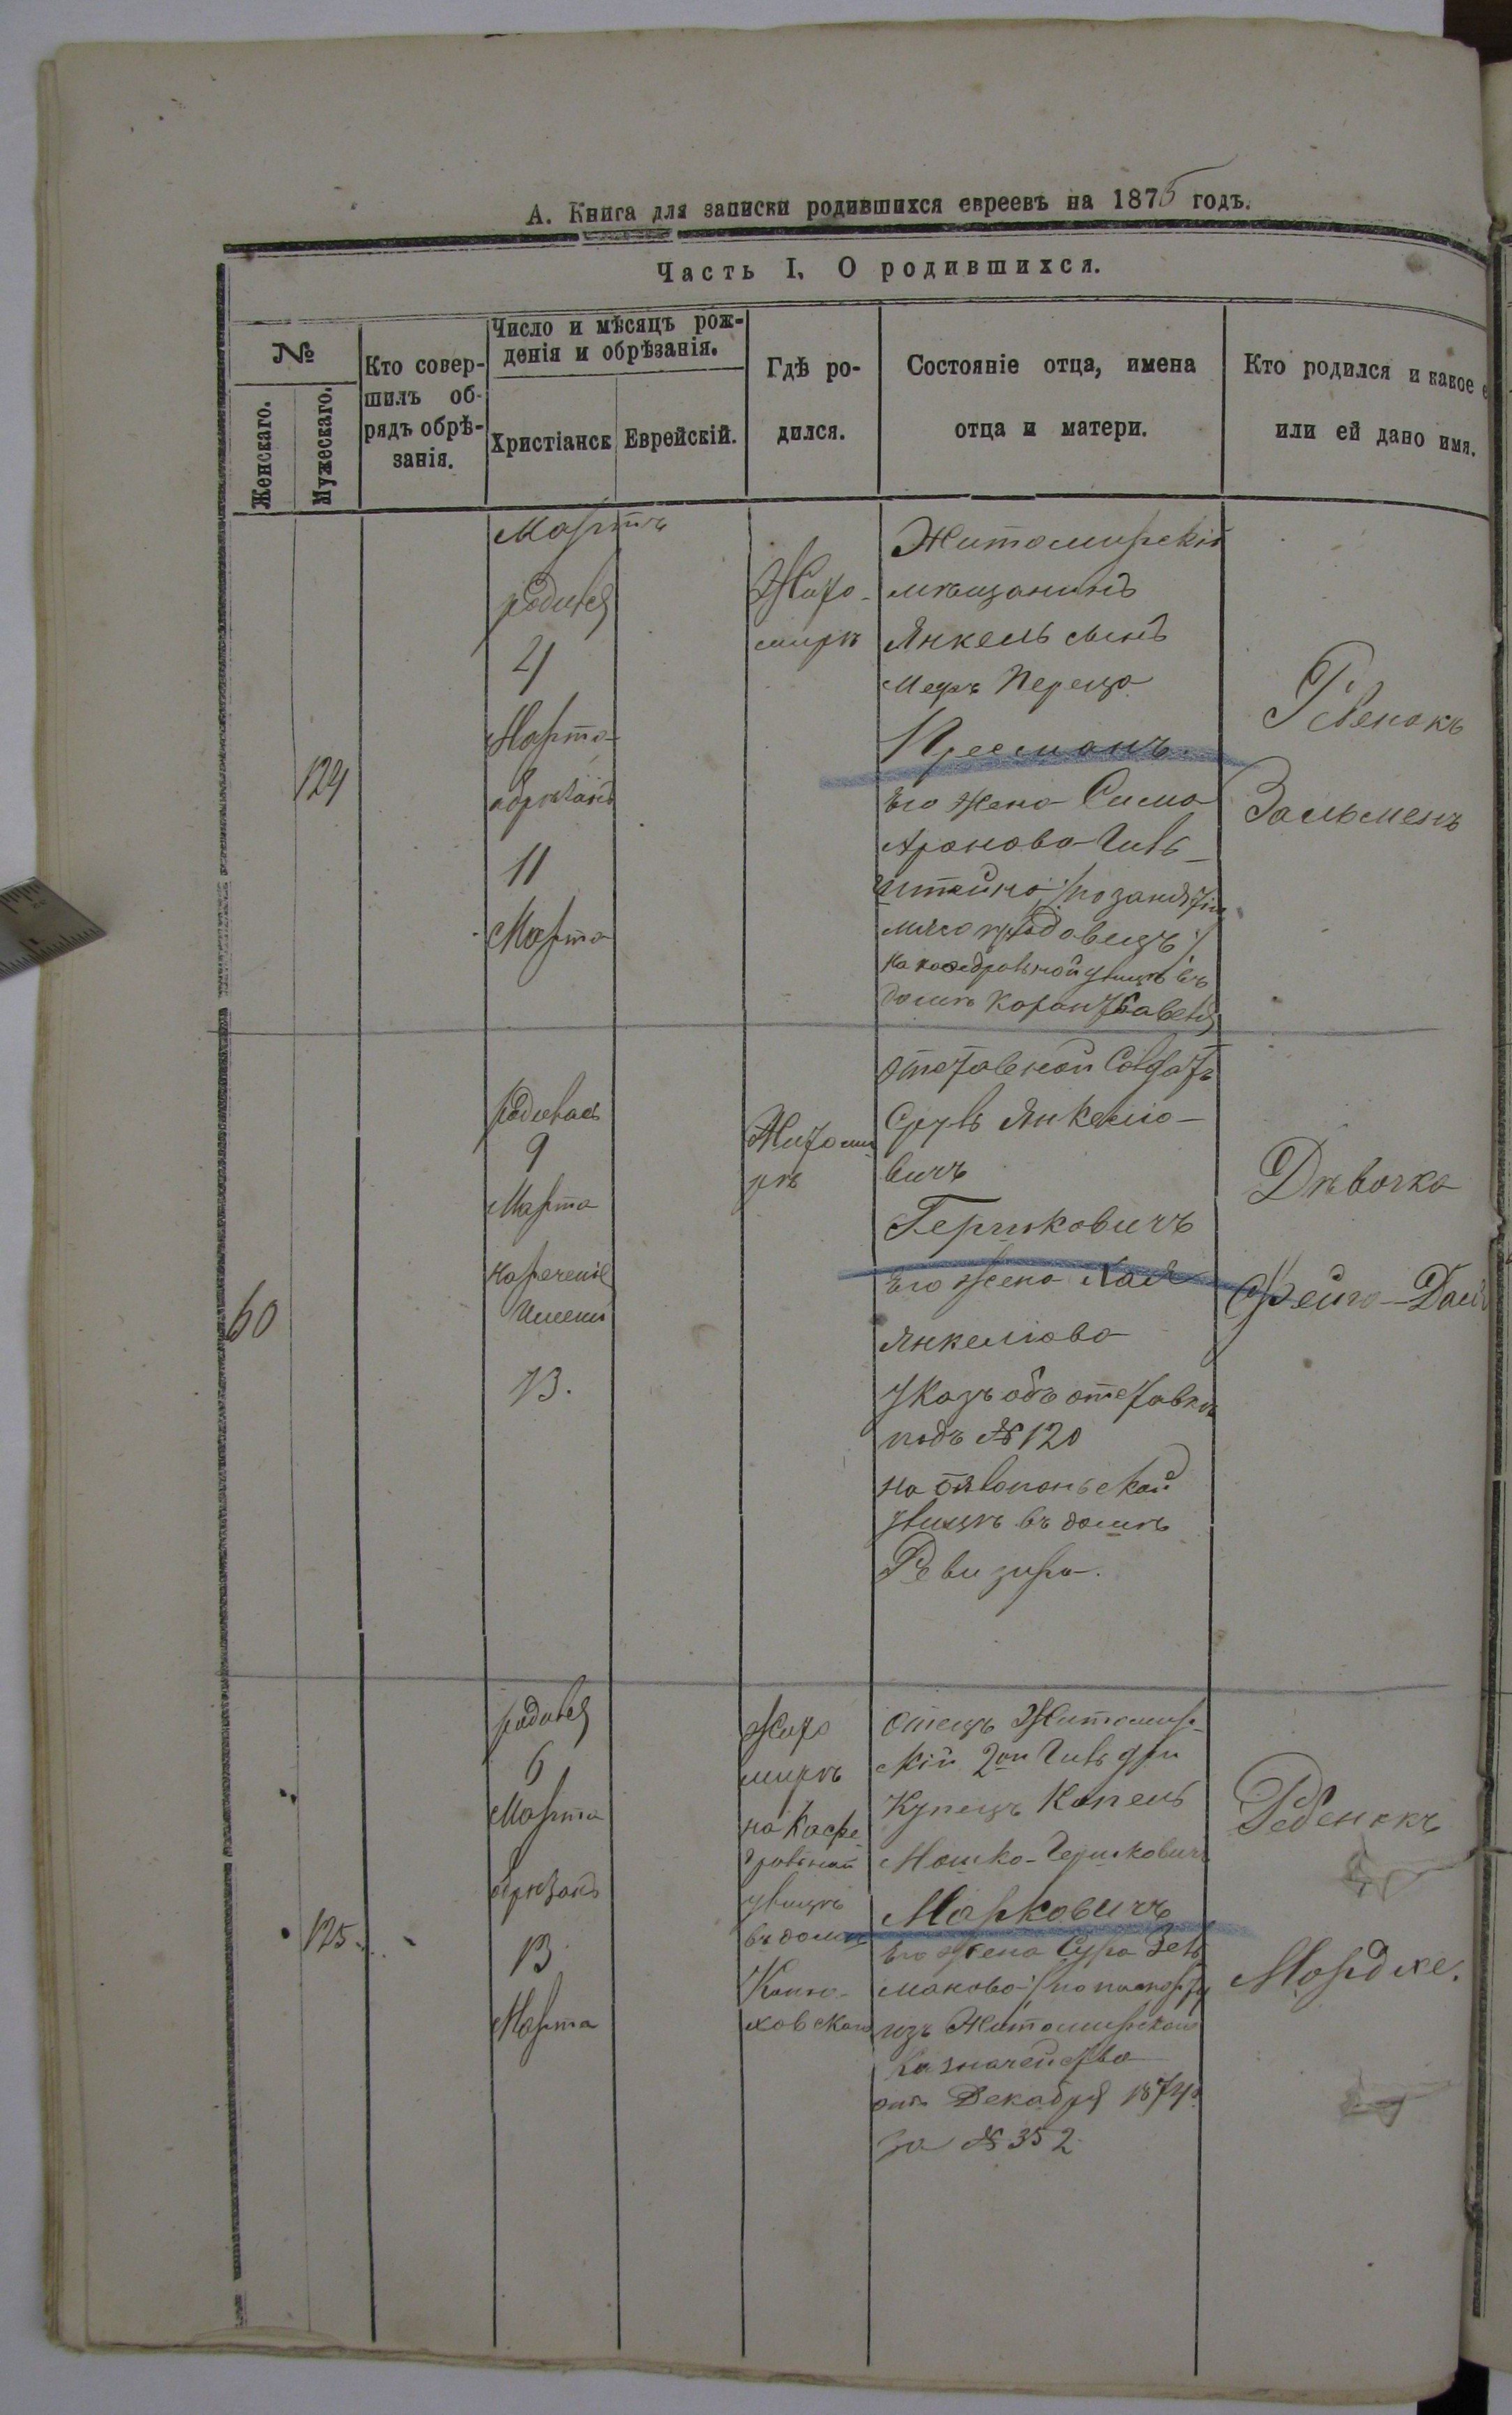 А. Книга для записки родившихся евреевъ на 1875 годъ.
Часть I. О родившихся.
№
Женскаго.
Мужескаго.
Кто совер-
шилъ об-
рядъ обрѣ-
занія.
Число и мѣсяцъ рож-
денія и обрѣзанія.
Христіанск
Еврейскій.
Гдѣ ро-
дился.
Состояніе отца, имена
отца и матери.
Кто родился и какое е
или ей дано имя.
124
Мартъ
родився
Марта
обрѣзанъ
11
Марта
Жито-
мирѣ
Житомирскій
мѣщанинъ
Янкель сынъ
Мееръ Переца
Пресманъ.
Его жена Сима
Аронова Гиль-
штейна /:по занятію
На кафедральной улицѣ въ
домѣ
Ребенокъ
Зальменъ
60
родилась
9
Марта
нареченіе
имени
13.
Житоми
рѣ
отставной Солдатъ
Сруль Янкелio-
вичъ
Гершковичъ
Его жена Хая
Янкелiова
Указъ объ отставкѣ
подъ № 120
на
улицѣ въ домѣ
Ревизора.
Дѣвочка
Фейга-
125.
родився
6
Марта
обрѣзанъ
13
Марта
Жито
мирѣ
на Кафе
дральной
улицѣ
въ домѣ
ховскаго
отецъ Житомир-
скій 2ой Гильдіи
Купецъ Копель
Мошко-Гершковичъ
Марковичъ
Его жена Сура Зель
манова /:по паспорту
изъ Житомирскаго
Казначейства
отъ Декабря 1874г.
за № 352
Ребенокъ
Мордхе.